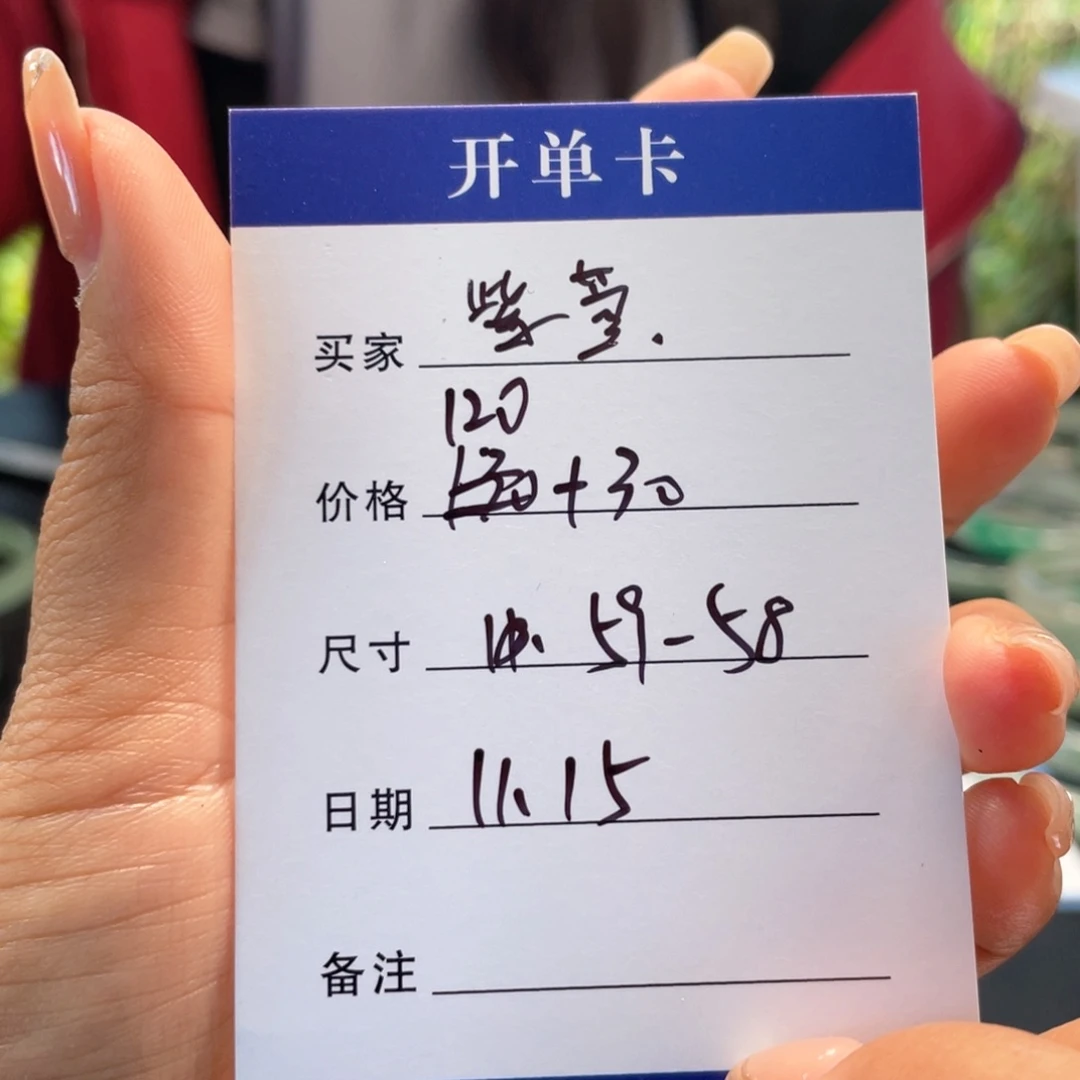 开单卡
买家 紫萱.
120
价格 +30
尺寸 59-58
日期 11.15
备注